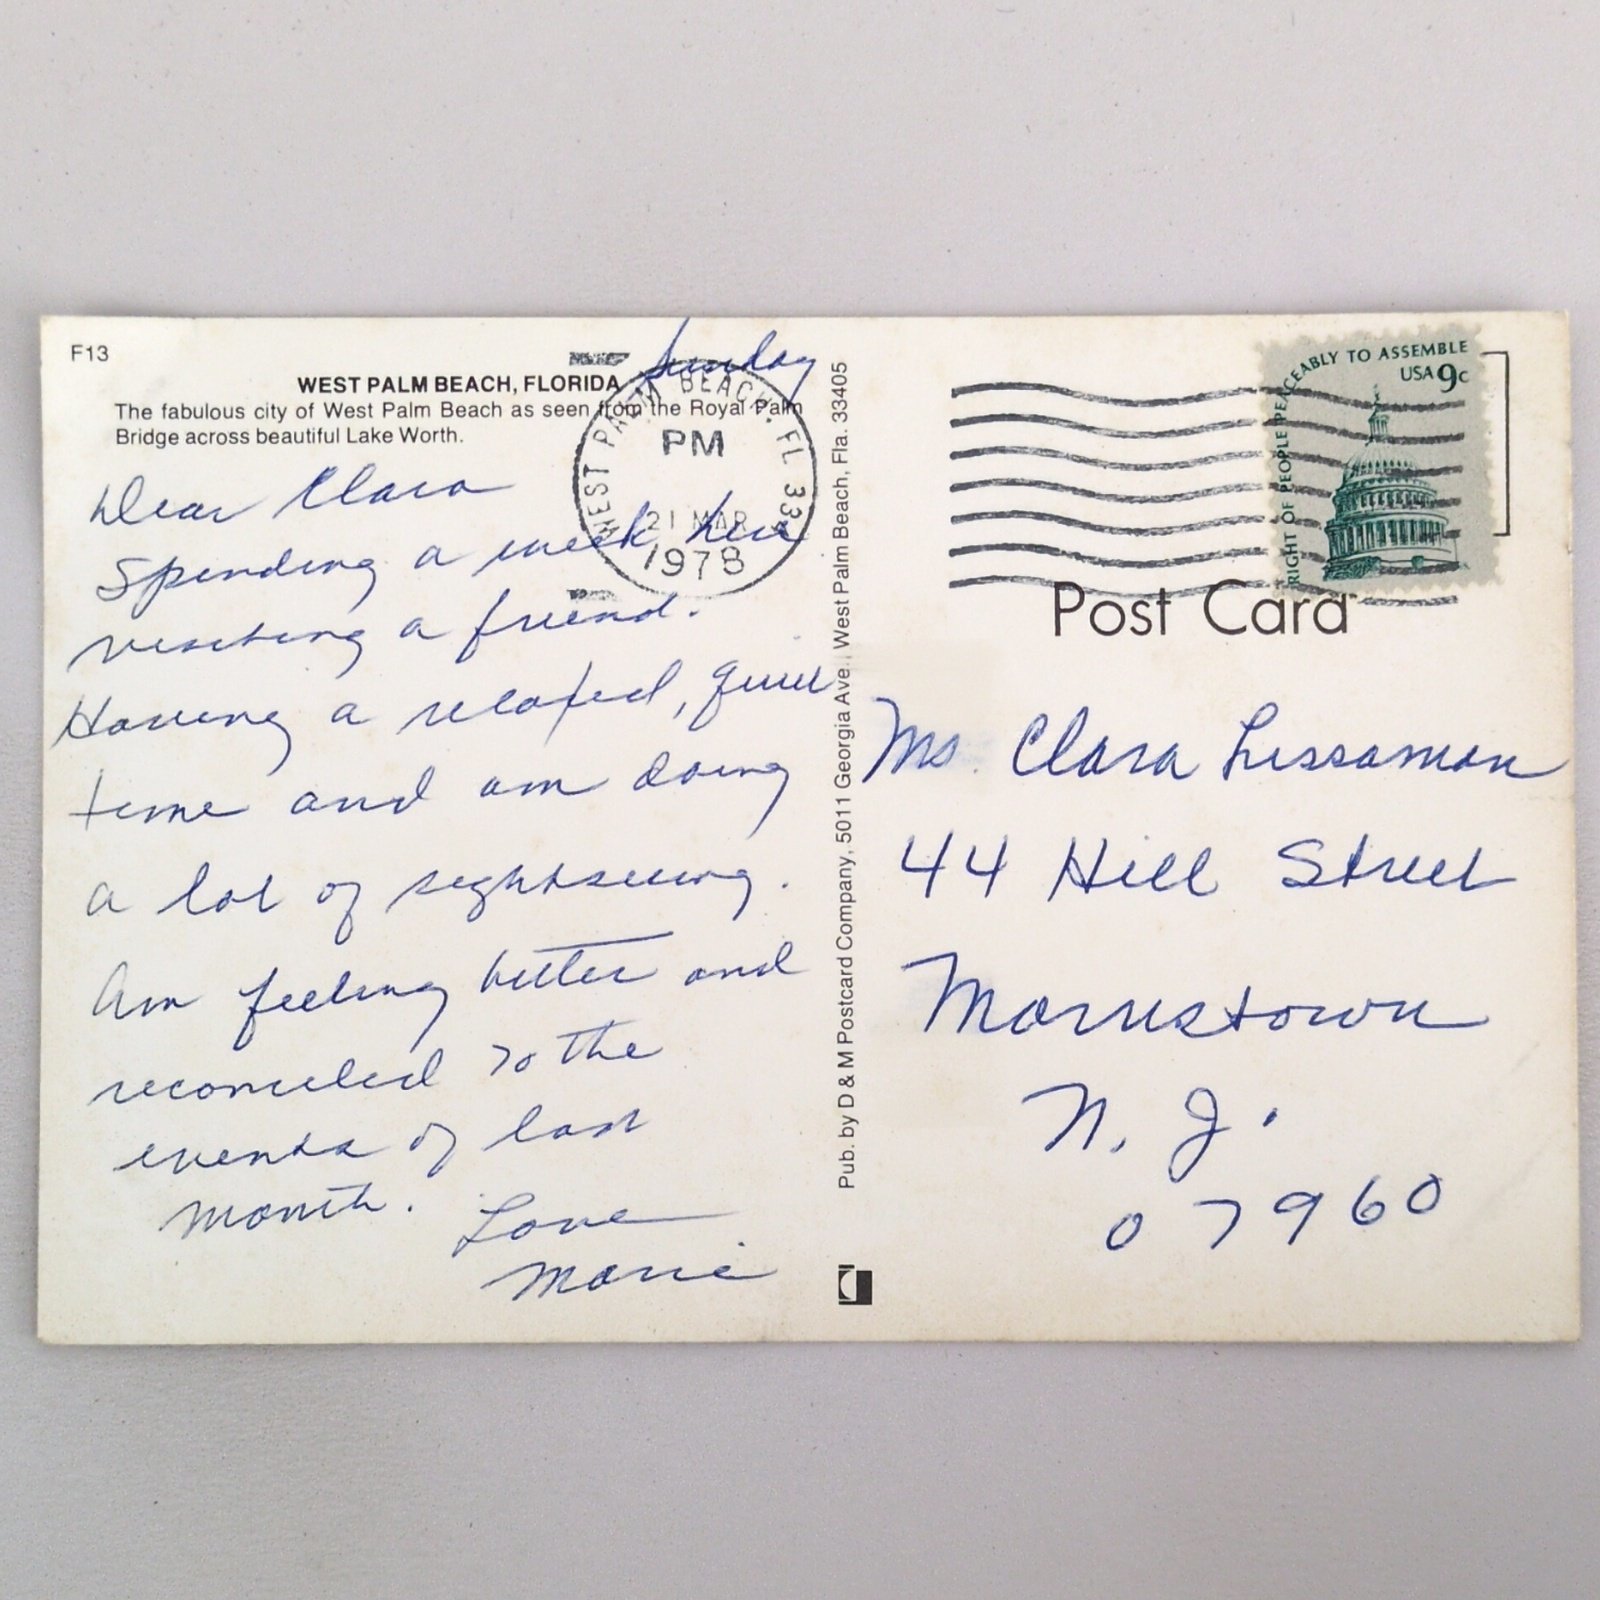 F13
WEST PALM BEACH, FLORIDA
The fabulous city of West Palm Beach as seen from the Royal Palm
Bridge across beautiful Lake Worth.
Sunday
Dear Clara
Spending a week here
visiting a friend.
Having a relaxed, quiet
time and am doing
a lot of sightseeing.
Am feeling better and
reconciled to the
events of last
month.
Love
Marie
WEST PALM BEACH, FL 334
PM
21 MAR
1978
Pub. by D & M Postcard Company, 5011 Georgia Ave., West Palm Beach, Fla. 33405
RIGHT OF PEOPLE PEACEABLY TO ASSEMBLE
USA 9c
Post Card
Ms. Clara Lissaman
44 Hill Street
Morristown
N. J.
07960